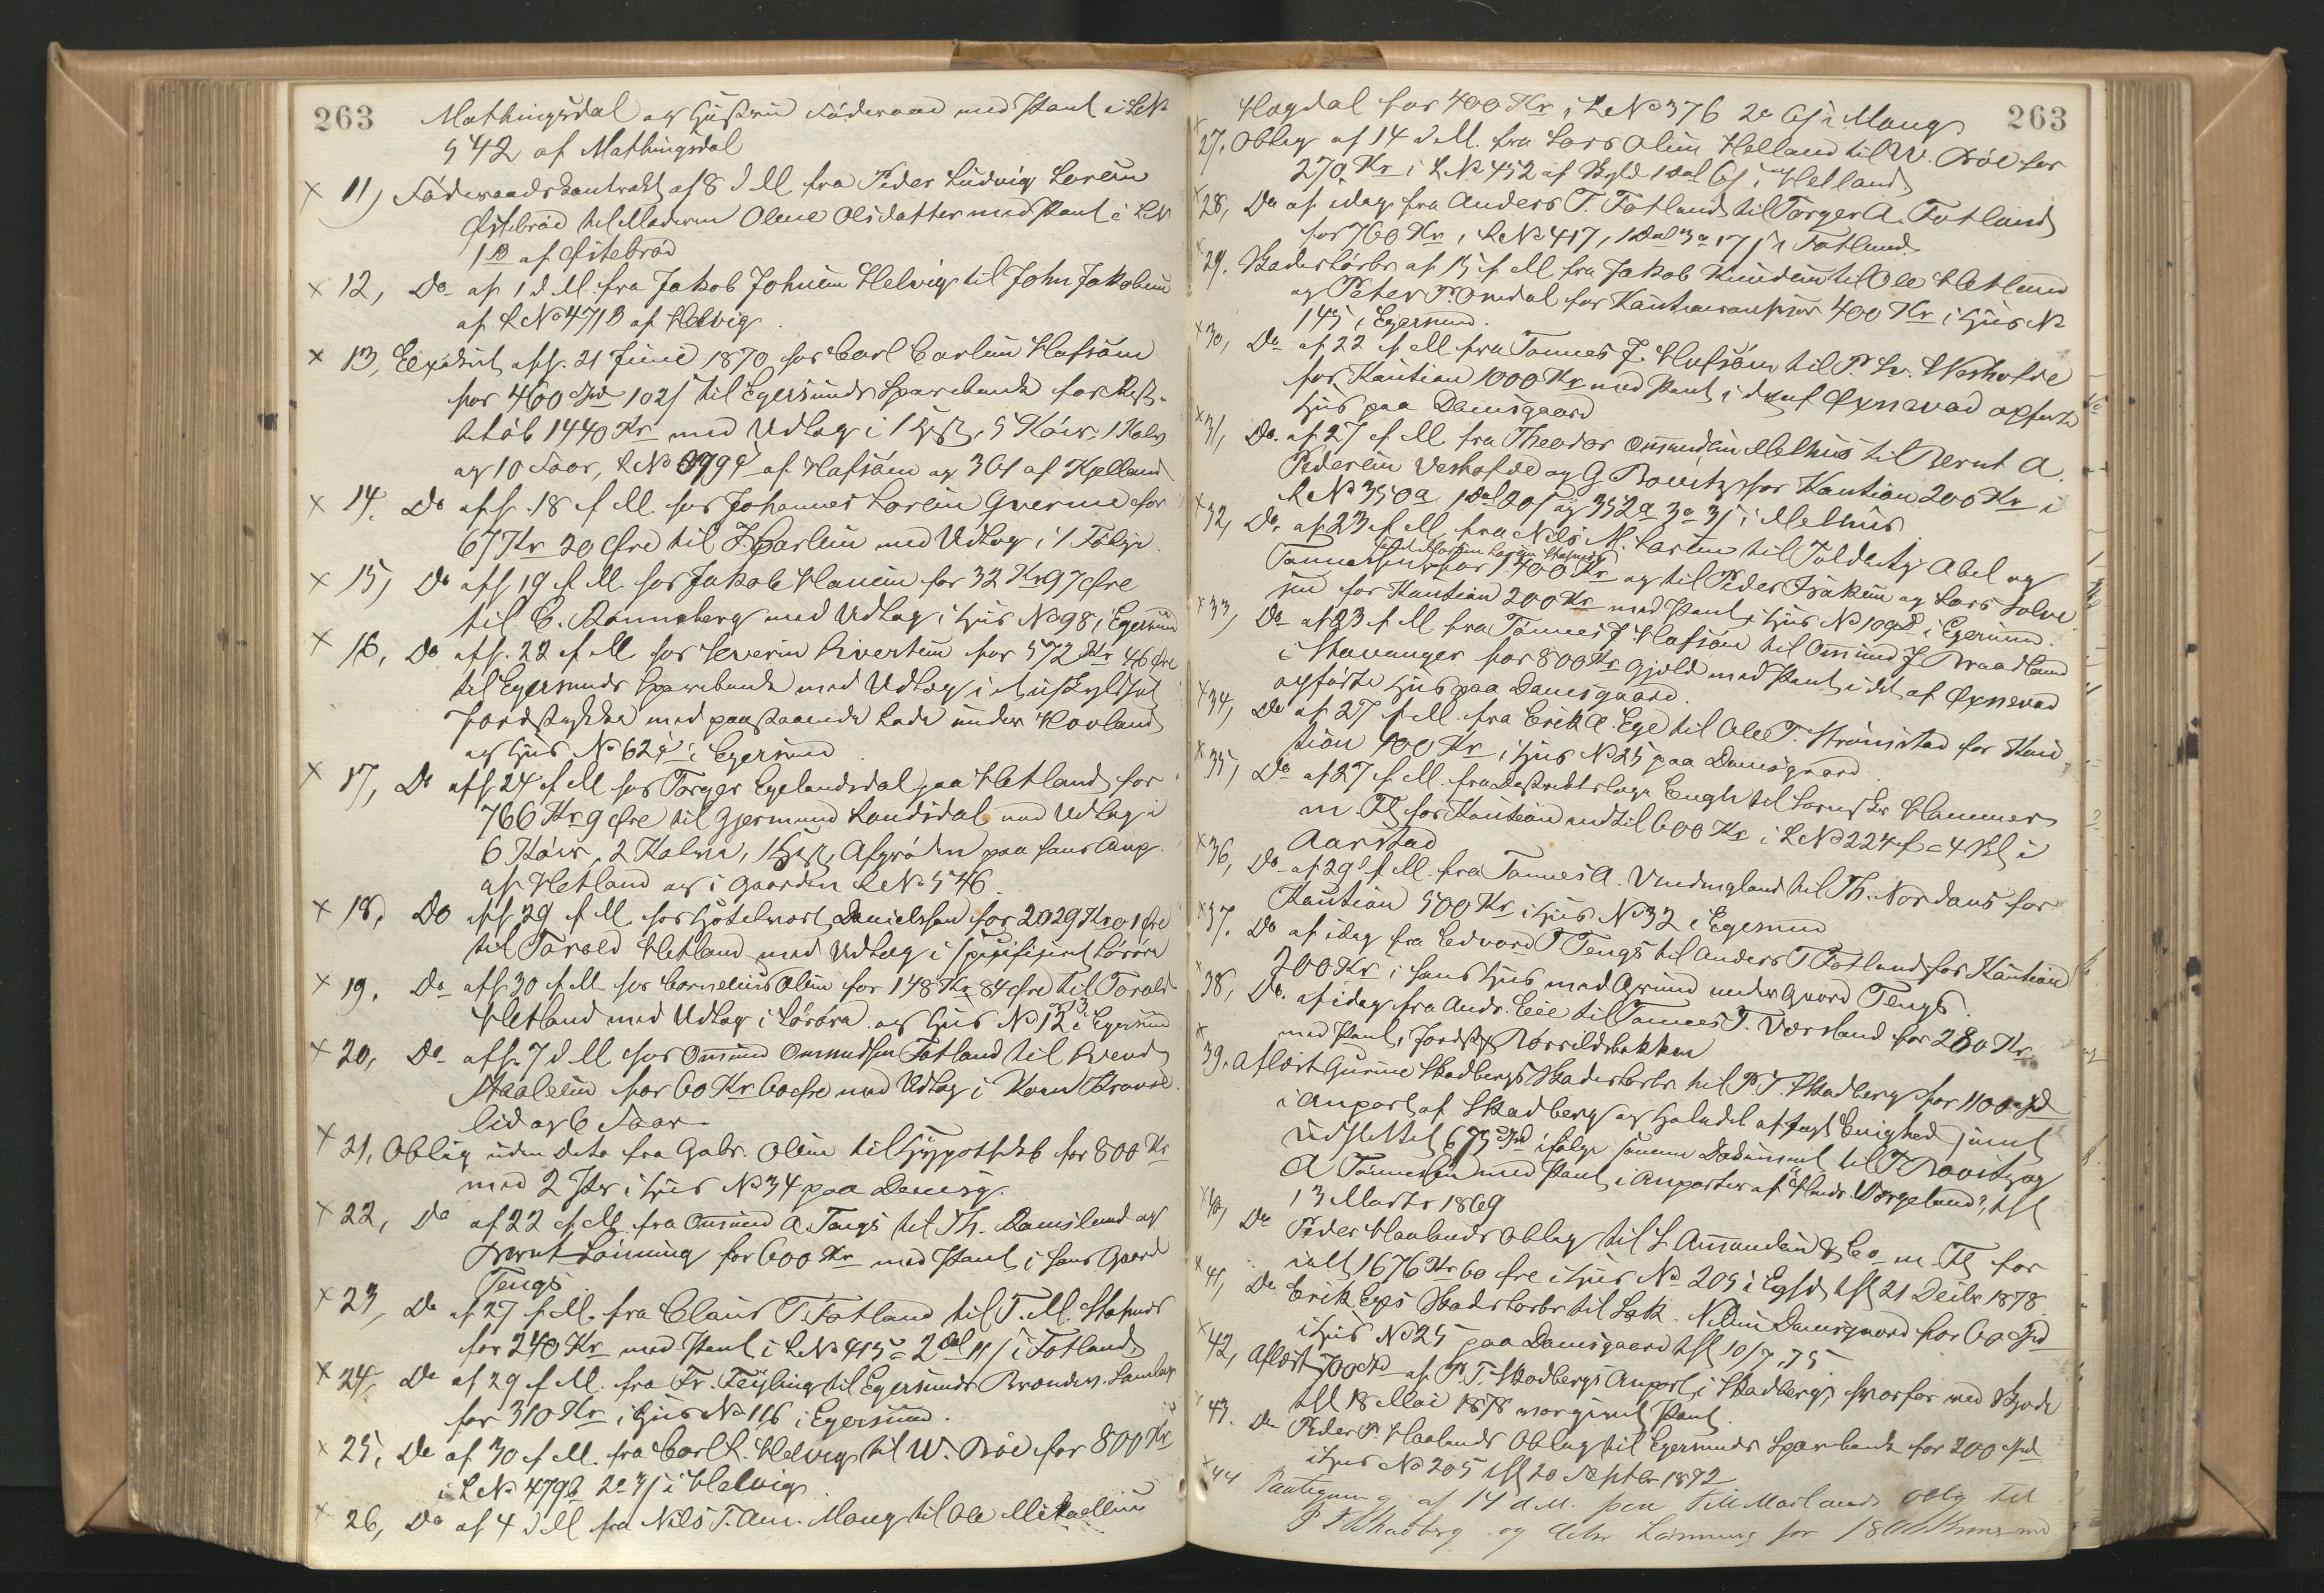 263
Mathingsdal og Hustru Føderaad med Pant i LN
542 af Mathingsdal
x 11) Føderaadskontrakt af 8 d M fra Peder Ludvig Larsen
Østebrød til Moderen Olene Olsdatter med Pant i LN
1B af Østebrød
x 12, Do af 1 d M. fra Jakob Johnsen Helvig til John Jakobsen
af LNo 471B af Helvig
x 13, Exekut. afh. 21 Juni 1870 hos Carl Carlsen Hafsøm
for 460 Spd 102 s til Egersunds Sparebank for Rest-
beløb 1440 Kr med Udlæg i 1 Hest, 5 Køer, 1 Kalv
og 10 Faar, LNo 399 af Hafsøm og af Kjelland
x 14. Do afh. 18 f M. hos Johannes Larsen Gverme for
67 Kr 20 Øre til J. Carlsen med Udlæg i 1 Følge
x 15) Do afh 19 f M. hos Jakob Hansen for 32 Kr 97 Øre
til C. Ranneberg med Udlæg i Huus No 98 i Egersund
x 16, Do afh. 22 f M hos Severin Sivertsen for 572 Kr 46 Øre
til Egersunds Sparebank med Udlæg i et uskyldsat
Jordstykke med paastaaende Lade under Hovland
og Huus No 62 i Egersund
x 17, Do afh 24 f M hos Torger Egelandsdal paa Hetland for
766 Kr 9 Øre til Gjermund Landsdal med Udlæg i
6 Køer, 2 Kalve, 1 Hest, Afgrøden paa hans Anp.
af Hetland og i Gaarden LNo 546.
x 18, Do afh 29 f M hos Hotelvert Danielsen for 2029 Kr 01 Øre
til Torald Hetland med Udlæg i specificeret Løsøre
x 19. Do afh 30 f M. hos Cornelius Olsen for 148 Kr 84 Øre til Torald
Hetland med Udlæg i Løsøre og Huus No 12 i Egersund
x 20, Do afh. 7 d M hos Omund Omundsen Fotland til Svend
Staalesen for 60 Kr 60 Øre med Udlæg i
lid og 6 Faar
x 21, Oblig uden Dato fra Gabr. Olsen til Hypothekb for 800 Kr
med 2 Pr i Huus No 34 paa Damsg.
x 22, Do af 22 f M fra Omund A Tengs til Th. Ramsland og
Bernt Løining for 600 Kr med Pant i hans Gaard
Tengs
x 23, Do af 27 f M. fra Claus T. Fotland til T. M. Stapnes
for 240 Kr med Pant i LNo 415 2 Dal 11 s i Fotland
x 24, Do af 29 f M. fra Fr. Feyling til Egersunds Brændev. Samlag
for 310 Kr i Huus No 116 i Egersund.
x 25, Do af 30 f M. fra Carl L. Helvig til W. Bøe for 800 Kr
i LNo 479b i Helvig
x 26, Do af 4 d M fra Nils T. Aun. Maug til Ole Mikaelsen
263
Hogdal for 400 Kr i LNo 376 i Maug
x 27. Oblig af 14 d M. fra Lars Olsen Helland til W. Bøe for
270 Kr i LNo 452 af Skyld 1 Dal i Helland
x 28, Do af idag fra Anders T. Fotland til Torger A. Fotland
for 760 Kr i LNo 417, 1 Dal i Fotland
x 29. Skadesløsbr af 15 f M fra Jakob Knudsen til Ole Hetland
og Peter P. Omdal for Kautionsansvar 400 Kr i Huus No
145 i Egersund.
x 30, Do af 22 f M fra Tønnes J. Hafsøm til P. Sv. Veshofde
for Kaution 1000 Kr med Pant i det af Øxnevad opførte
Huus paa Damsgaard
x 31, Do. af 27 f M fra Theodor Omundsen Melhus til Bernt A.
Pedersen Veshofde og G Bowitz for Kaution 200 Kr i
LNo 350a 1 Dal og 352a i Melhus
x 32, Do. af 23 f M. fra Nils M. Larsen til Toldbetj Abel og
Tønnessen for 1400 Kr og til Peder Isaksen og Lars Salve
sen for Kaution 200 Kr med Pant i Huus No 109 i Egersund.
x 33, Do af 23 f M. fra Tønnes J Hafsøm til Omund J. Braadland
i Stavanger for 800 Kr Gjæld med Pant i det af Øxnevad
opførte Huus paa Damsgaard.
x 34, Do af 27 f M. fra Erik A. Ege til Ole T. Strømstad for Kau
tion 400 Kr i Huus No 25 paa Damsgaard
x 35, Do af 27 f M. fra Distriktslæge Engh til Hammer
m. Fl for Kaution indtil 600 Kr i LNo 224 i
Aarstad
x 36, Do af 29 f M. fra Tønnes A. til Th. Nordaas for
Kaution 500 Kr i Huus No 32 i Egersund
x 37. Do af idag fra Edvard T Tengs til Anders T Fotland for Kaution
200 Kr i hans Huus med Grund under Gaard Tengs.
x 38, Do. af idag fra Andr. Eie til Tønnes T. Vaersland for 280 Kr
med Pant i Jordst
x 39. Aflæst Gurine Skadbergs Skadesløsbr til P. T. Skadberg for 1100 Spd
i Anpart af Skadberg og Halvdel af Jagt Enighed samt
udslettet 675 Spd ifølge samme Dokument til J. Bowitz og
A Tønnessen med Pant i Anparter af Vorgeland, thl
13 Marts 1869
x 40, Do Peder Haalands Oblig til L Amundsen & Co m. Fl for
ialt 1676 Kr 60 Øre i Huus No 205 i Egsd thl 21 Decbr 1878
x 41, Do Erik Eges Skadesløsbr til Isak Nilsen Damsgaard for 60 Spd
i Huus No 25 paa Damsgaard thl 10/7 75
x 42, Aflæst 700 Spd af P. T. Skadbergs Anpart i Skadberg, hvorfor ved Skjøde
thl 18 Mai 1878 Pant
x 43. Do Peder P. Haalands Oblig til Egersunds Sparebank for 200 Spd
i Huus No 205 thl 20 Septbr 1872
x 44 af 14 d M. paa Oblig til
P T Skadberg og Løining for